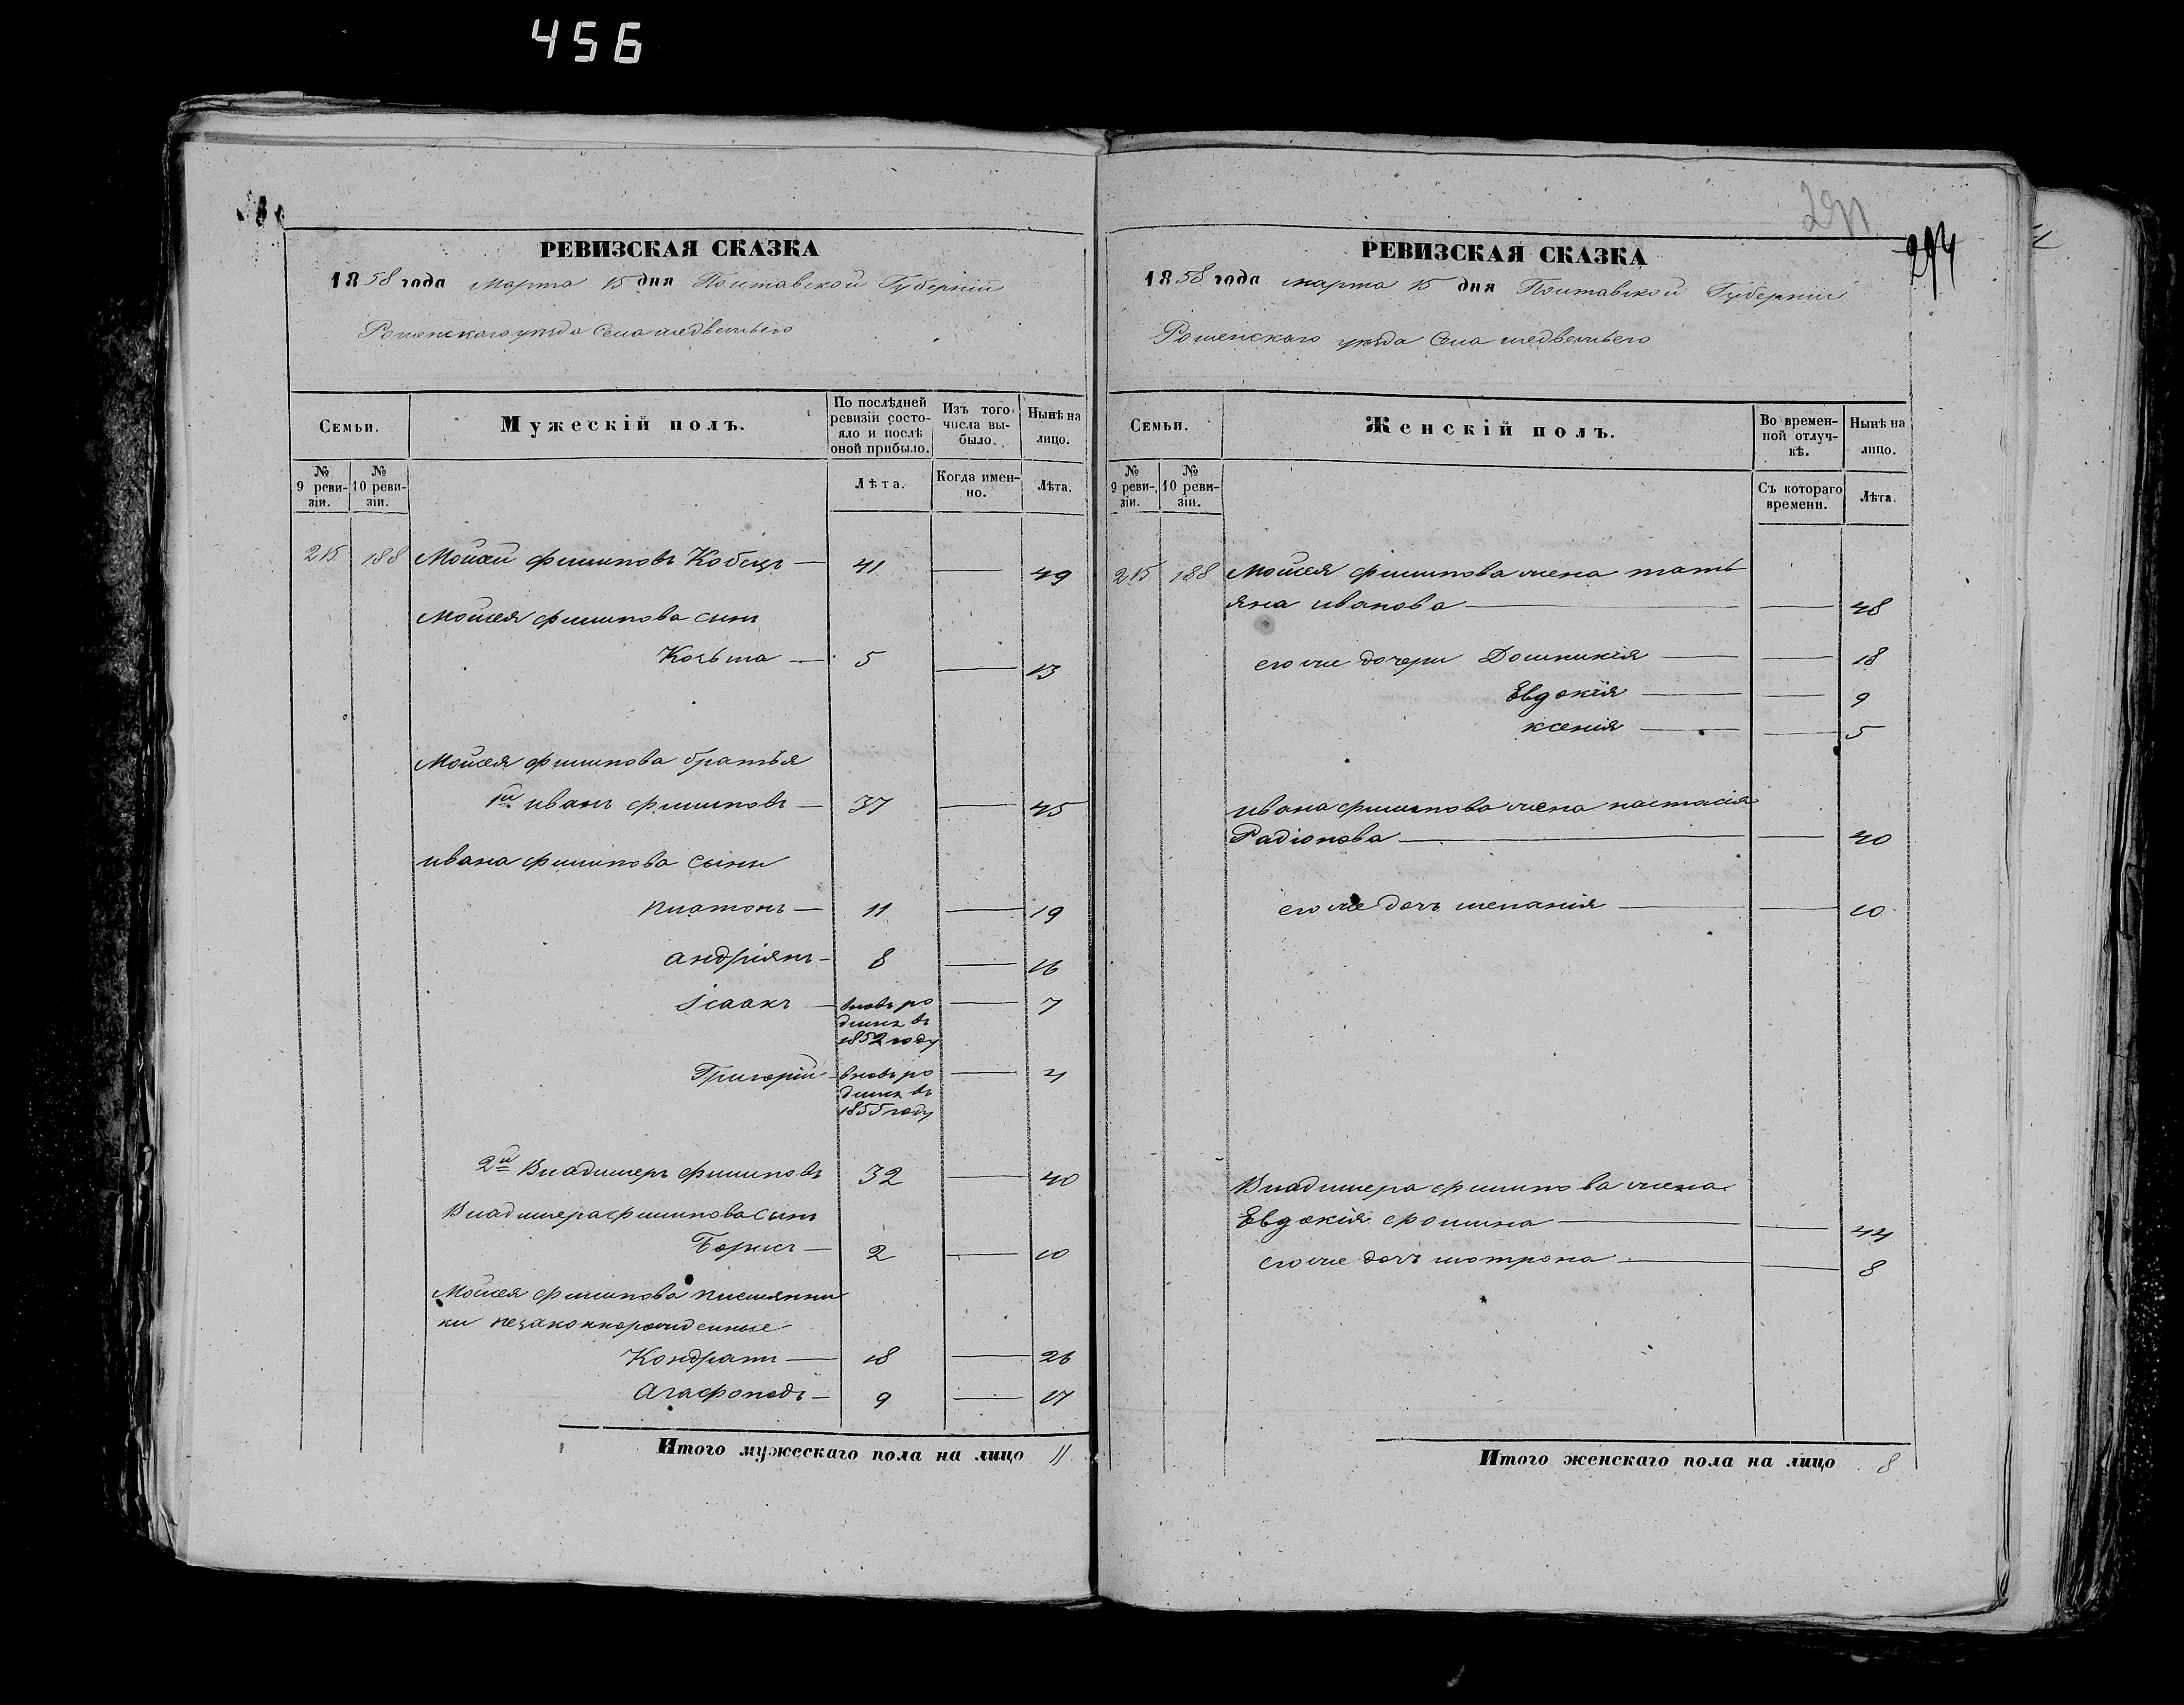 456
РЕВИЗСКАЯ СКАЗКА
1858 года Марта 15 дня Полтавской Губерніи
Роменскаго уѣзда Села медвежьего
Семьи.
Мужескій полъ.
По послѣдней ревизіи состояло и послѣ оной прибыло.
Изъ того числа выбыло.
Нынѣ на лицо.
№ 9 ревизіи.
№ 10 ревизіи.
Лѣта.
Когда именно.
Лѣта.
215 188 Мойсей филиповъ Кобецъ — 41 — 49
Мойсея филипова сынъ
Козьма — 5 — 13
Мойсея филипова братья
1й иванъ филиповъ — 37 — 45
ивана филипова сыны
платонъ — 11 — 19
андріянъ — 8 — 16
Ісаакъ — вновь ро — 7
дился въ
1852 году
Григорій — вновь ро — 4
дился въ
1855 году
2й Владимеръ филиповъ 32 — 40
Владимера филипова сынъ
Борисъ — 2 — 10
Мойсея филипова племянни
ки незаконнорожденные
Кондратъ — 18 — 26
Агафоподъ — 9 — 17
Итого мужескаго пола на лицо 11
294
РЕВИЗСКАЯ СКАЗКА
1858 года марта 15 дня Полтавской Губерніи
Роменскаго уѣзда Села медвежьего
Семьи.
Женскій полъ.
Во временной отлучкѣ.
Нынѣ на лицо.
№ 9 ревизіи.
№ 10 ревизіи.
Съ котораго времени.
Лѣта.
215 188 Мойсея филипова жена тать
яна иванова — — 48
его же дочери Домникія — — 18
Евдокія — — 9
ксенія — — 5
ивана филипова жена настасія
Радіонова — — 40
его же дочь меланія — — 10
Владимера филипова жена
Евдокія фомина — — 44
его же дочь мотрона — — 8
Итого женскаго пола на лицо 8